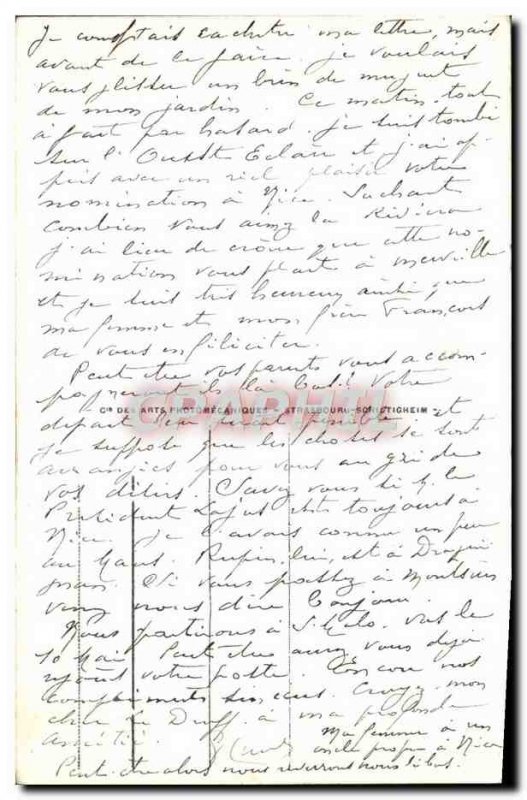 Je comptais cachetter ma lettre, mais
avant de le faire je voulais
vous glisser un brin de muguet
de mon jardin. Ce matin, tout
à fait par hasard, je suis tombé
sur l'Ouest Eclair et j'ai ap-
pris avec un réel plaisir votre
nomination à Nice. Sachant
combien vous aimez la Riviera
j'ai lieu de croire que cette no-
mination vous plaît à merveille
et je suis très heureux ainsi que
ma femme et mon frère François
de vous en féliciter.
Peut-être vos parents vous accom-
pagneront-ils là-bas! Votre
Cie DES ARTS PHOTOMÉCANIQUES - STRASBOURG-SCHILTIGHEIM
CPAPHIL
départ sera peu pénible et
je suppose que les choses se sont
arrangées pour vous au gré de
vos désirs. Savez vous si le
Président est toujours à
Nice. Je l'avais connu un peu
au Mans. lui, est à Dragui-
gnan. Si vous passez à
venez nous dire bonjour.
Nous partirons à St Malo vers le
10 Mai. Peut-être aurez vous déjà
rejoint votre poste. Encore nos
compliments sincères. Croyez, mon
cher Le Duff, à ma profonde
amitié.
Ma femme a un
oncle à Nice
Peut-être alors nous reverrons-nous là-bas.